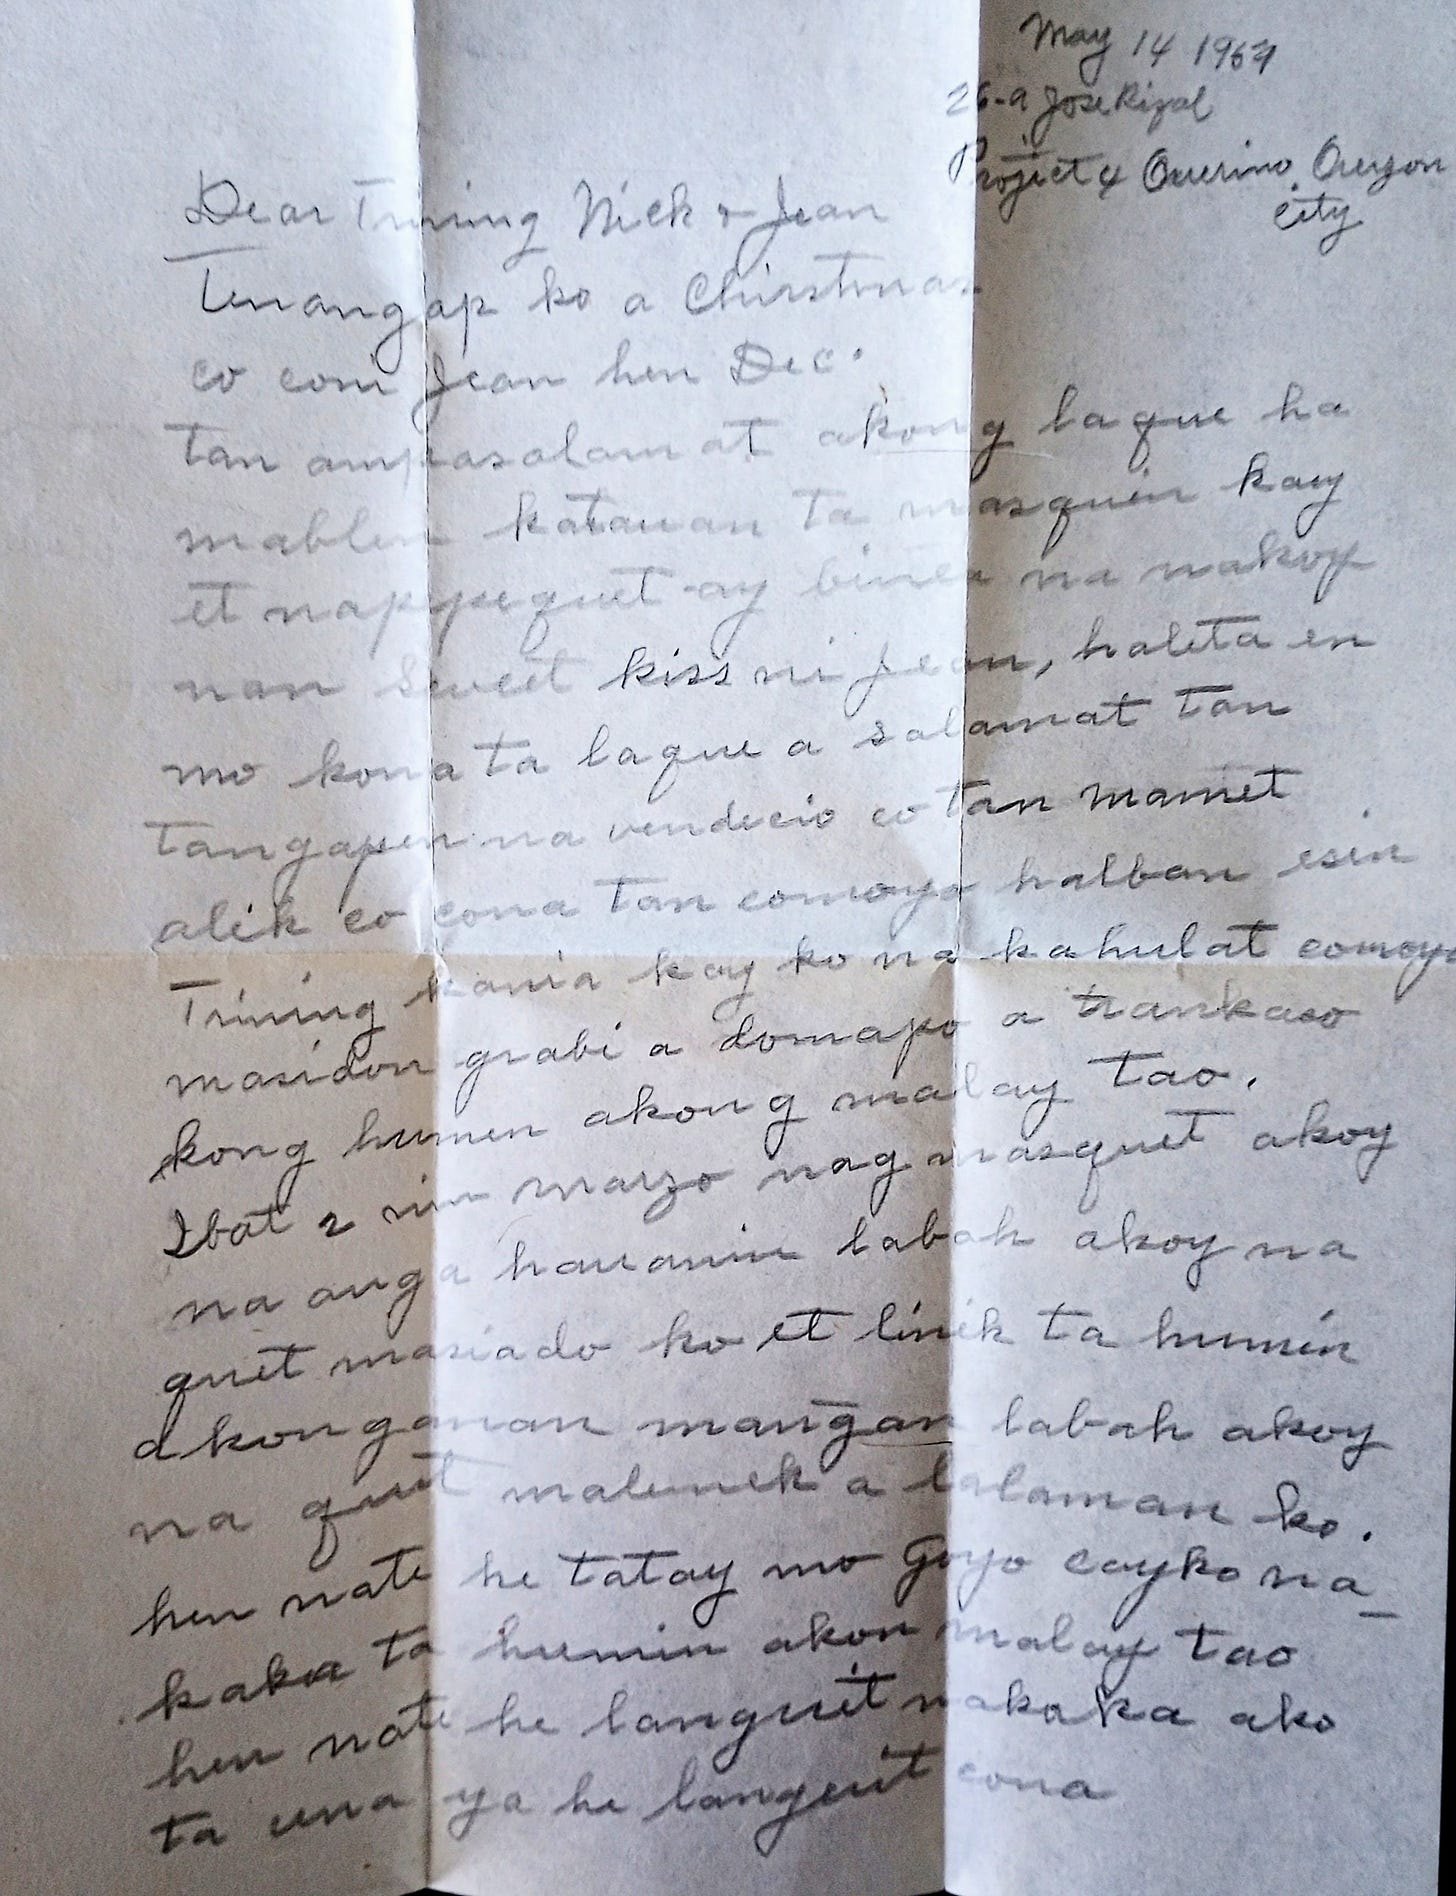 May 14 1967
26-A Jose Rizal
Project 4 Querino, Oregon
City
Dear Trining Nick & Jean
Tenangap ko a Chirstmas
co coni Jean hen Dec.
tan ampasalamat akong laque ha
mablen katauan ta masquin kay
et nappequet ay binea na nakoy
nan sweet kiss ni Jean, haleta en
mo kona ta laque a salamat tan
tangapen na vendecio co tan mamet
alik co cona tan comoyo halban esin
Trining kania kay ko na kahulat comoyo
masidon grabi a domapo a trankaso
kong humen akong malay tao.
Ibat 2 nin marzo nag masquet akoy
na anga hauanin labah akoy na
quet masiado ko et linik ta humin
akong ganan mangan labah akoy
na quet malenek a lalaman ko.
hen nate he tatay mo Goyo cayko na_
kaka ta humin akon malay tao
hen nate he languit nakaka ako
ta una ya he languit cona